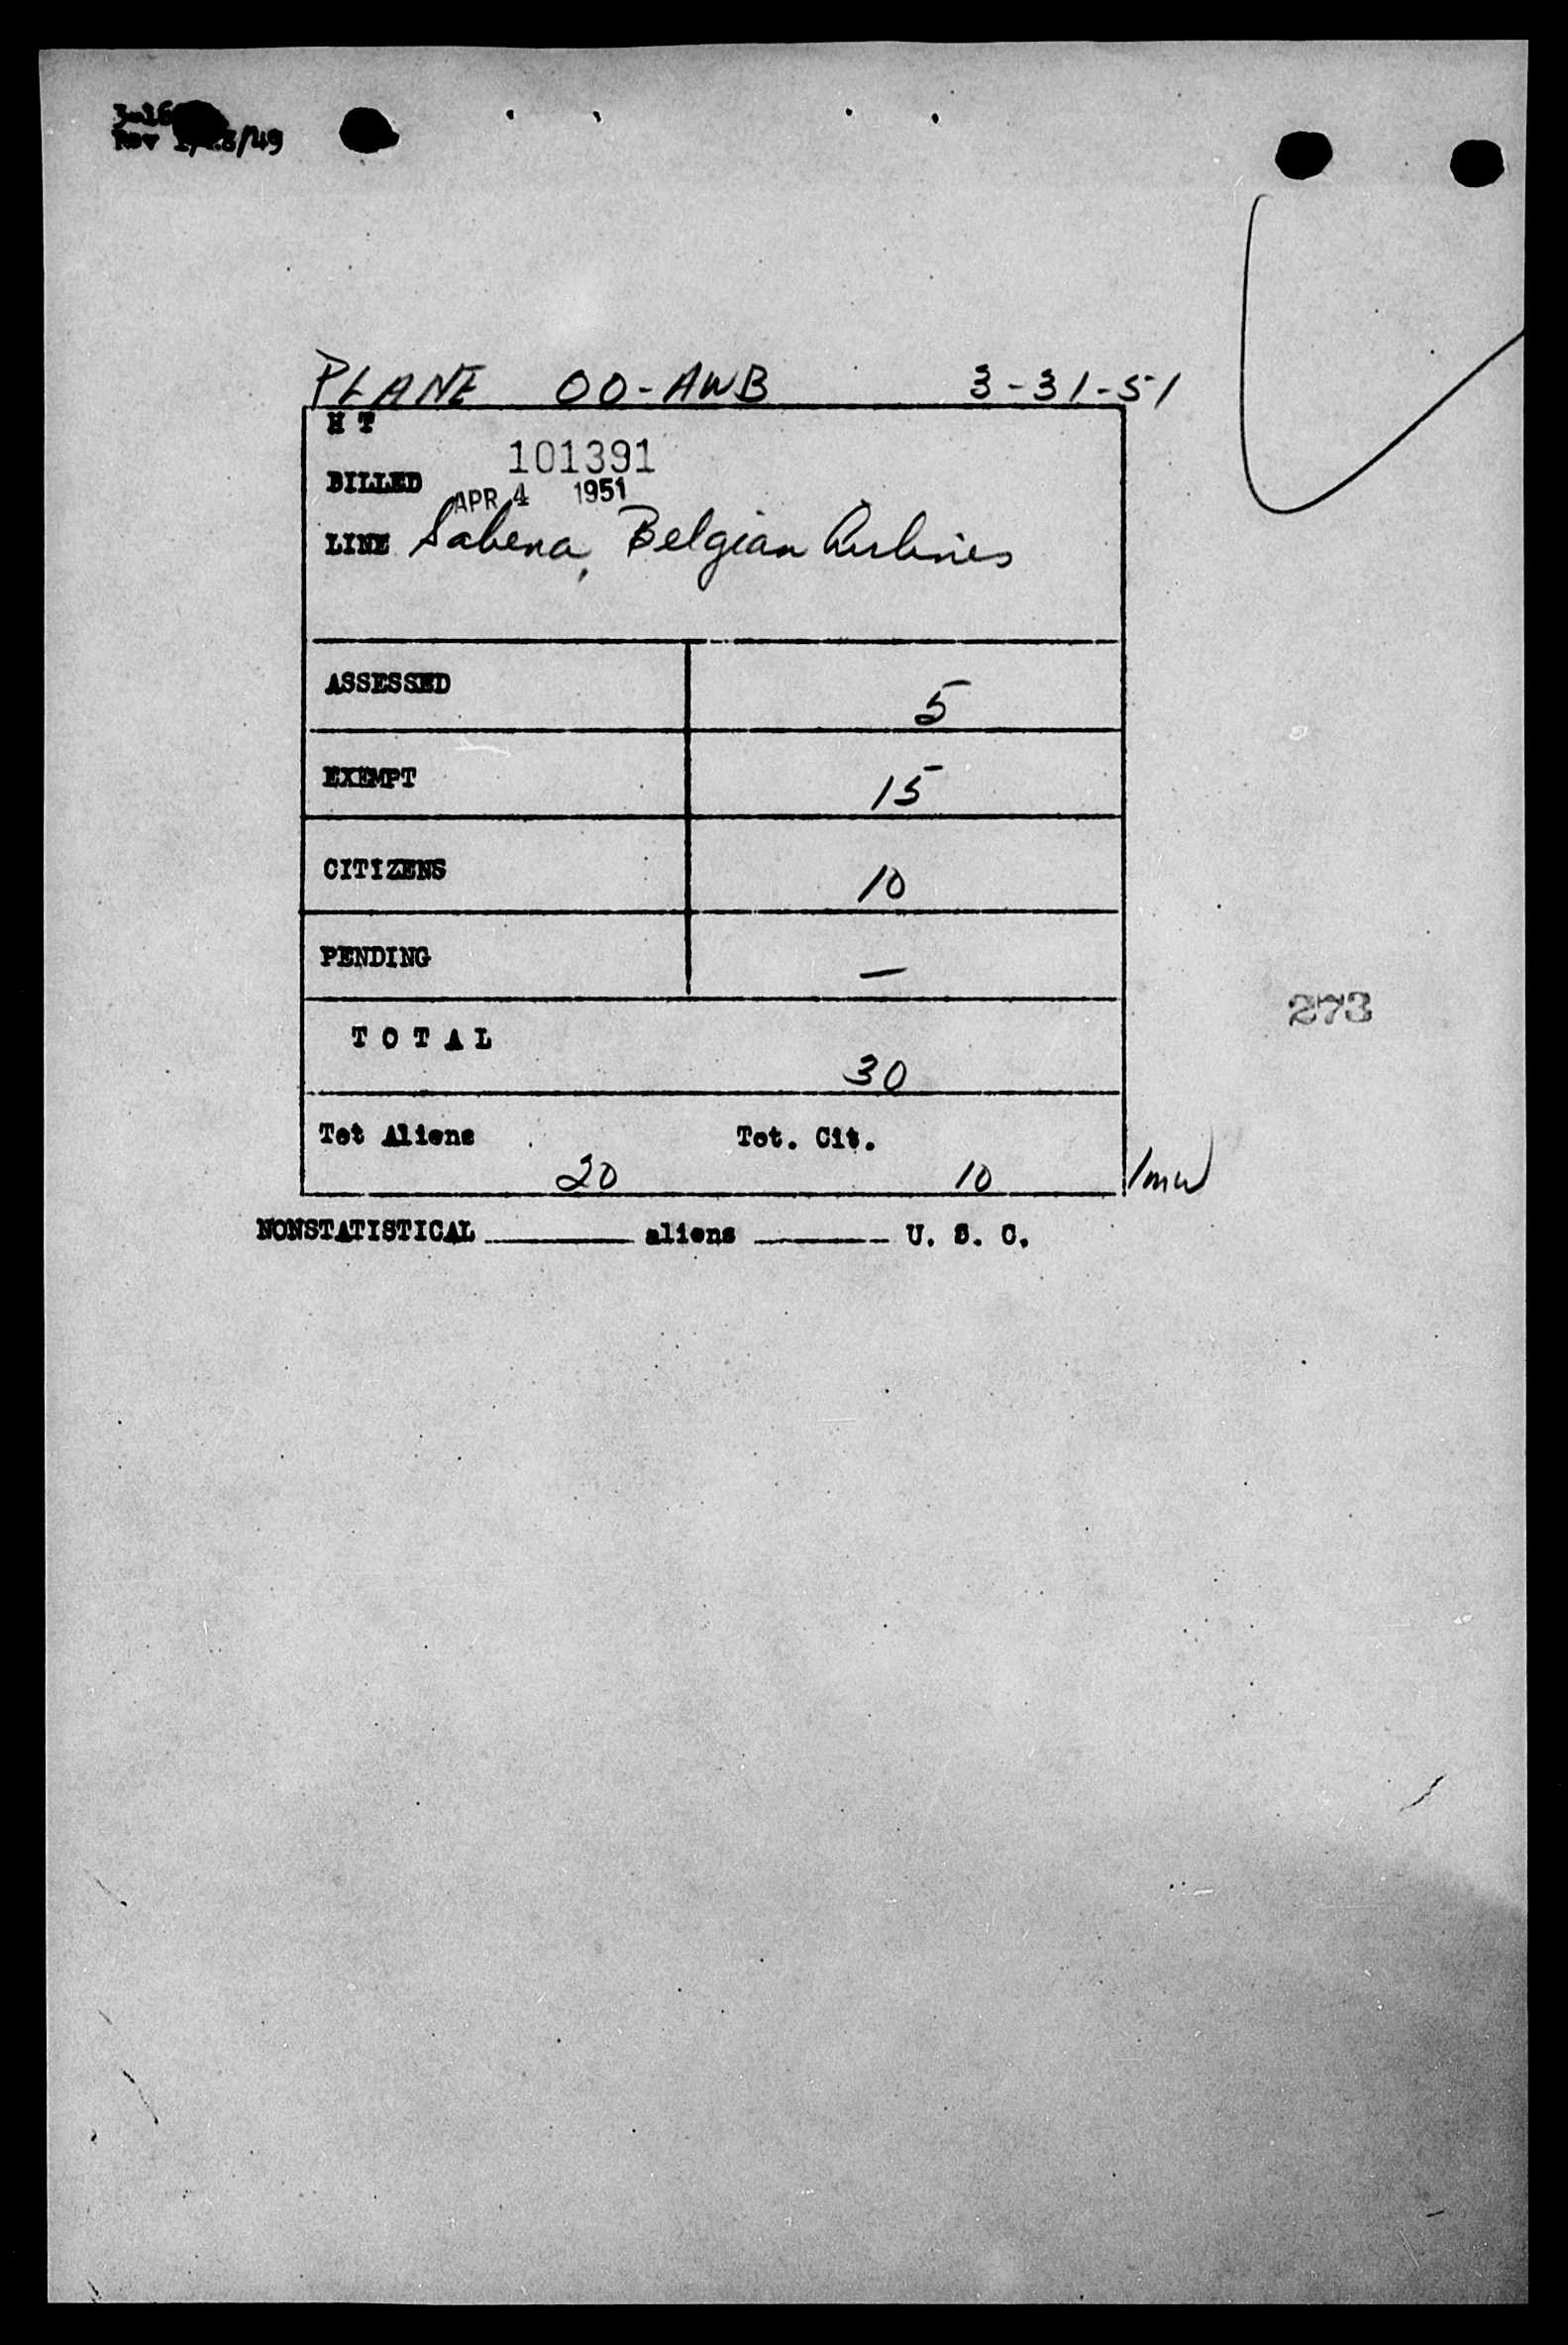 Rev
PLANE OO-AWB 3-31-51
H T
101391
BILLED
APR 4 1951
LINE Sabena, Belgian Airlines
ASSESSED 5
EXEMPT 15
CITIZENS 10
PENDING —
273
T O T A L
30
Tot Aliens Tot. Cit.
20 10
NONSTATISTICAL ______ aliens ______ U. S. C.